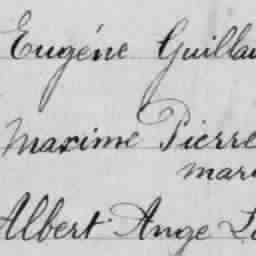 Eugéne Guillau
Maxime Pierre
mar
Albert Ange L